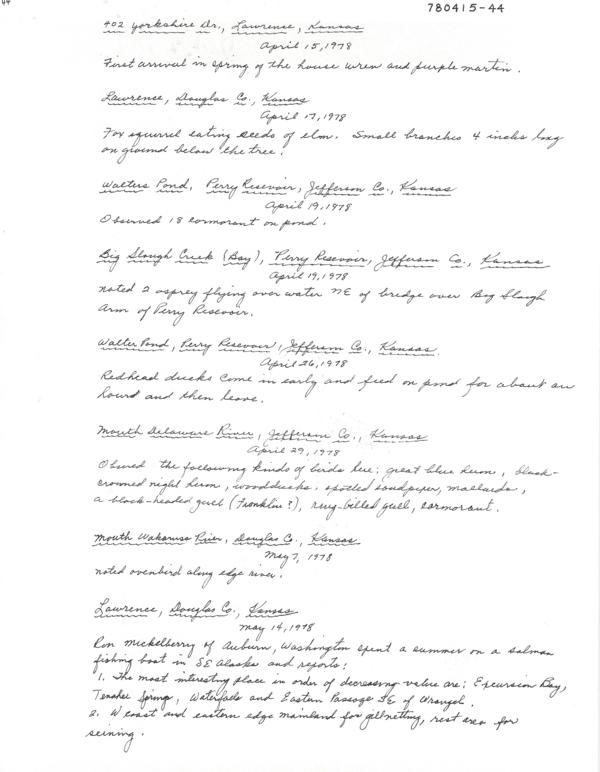 44
780415-44
402 Yorkshire Dr., Lawrence, Kansas
April 15, 1978
First arrival in spring of the house wren and purple martin.
Lawrence, Douglas Co., Kansas
April 17, 1978
Fox squirrel eating seeds of elm. Small branches 4 inches long
on ground below the tree.
Walters Pond, Perry Resevoir, Jefferson Co., Kansas
April 19, 1978
Observed 18 cormorant on pond.
Big Slough Creek (Bay), Perry Resevoir, Jefferson Co., Kansas
April 19, 1978
noted 2 osprey flying over water NE of bridge over Big Slough
Arm of Perry Resevoir.
Walter Pond, Perry Resevoir, Jefferson Co., Kansas.
April 26, 1978
Redhead ducks come in early and feed on pond for about an
hourd and then leave.
Mouth Delaware River, Jefferson Co., Kansas
April 29, 1978
Obsved the following kinds of birds here: great blue heron, black-
crowned night heron, woodducks, spotted sandpiper, mallards,
a black-headed gull (Franklin?), ring-billed gull, cormorant.
Mouth Wakarusa River, Douglas Co., Kansas
May 7, 1978
noted ovenbird along edge river.
Lawrence, Douglas Co., Kansas
May 14, 1978
Ron Mickelberry of Auburn, Washington spent a summer on a salmon
fishing boat in SE Alaska and reports:
1. The most interesting place in order of decreasing value are; Excursion Bay,
Tenakee Springs, Waterfalls and Eastern Passage SE of Wrangel.
2. W coast and eastern edge mainland for gillnetting, rest area for
seining.